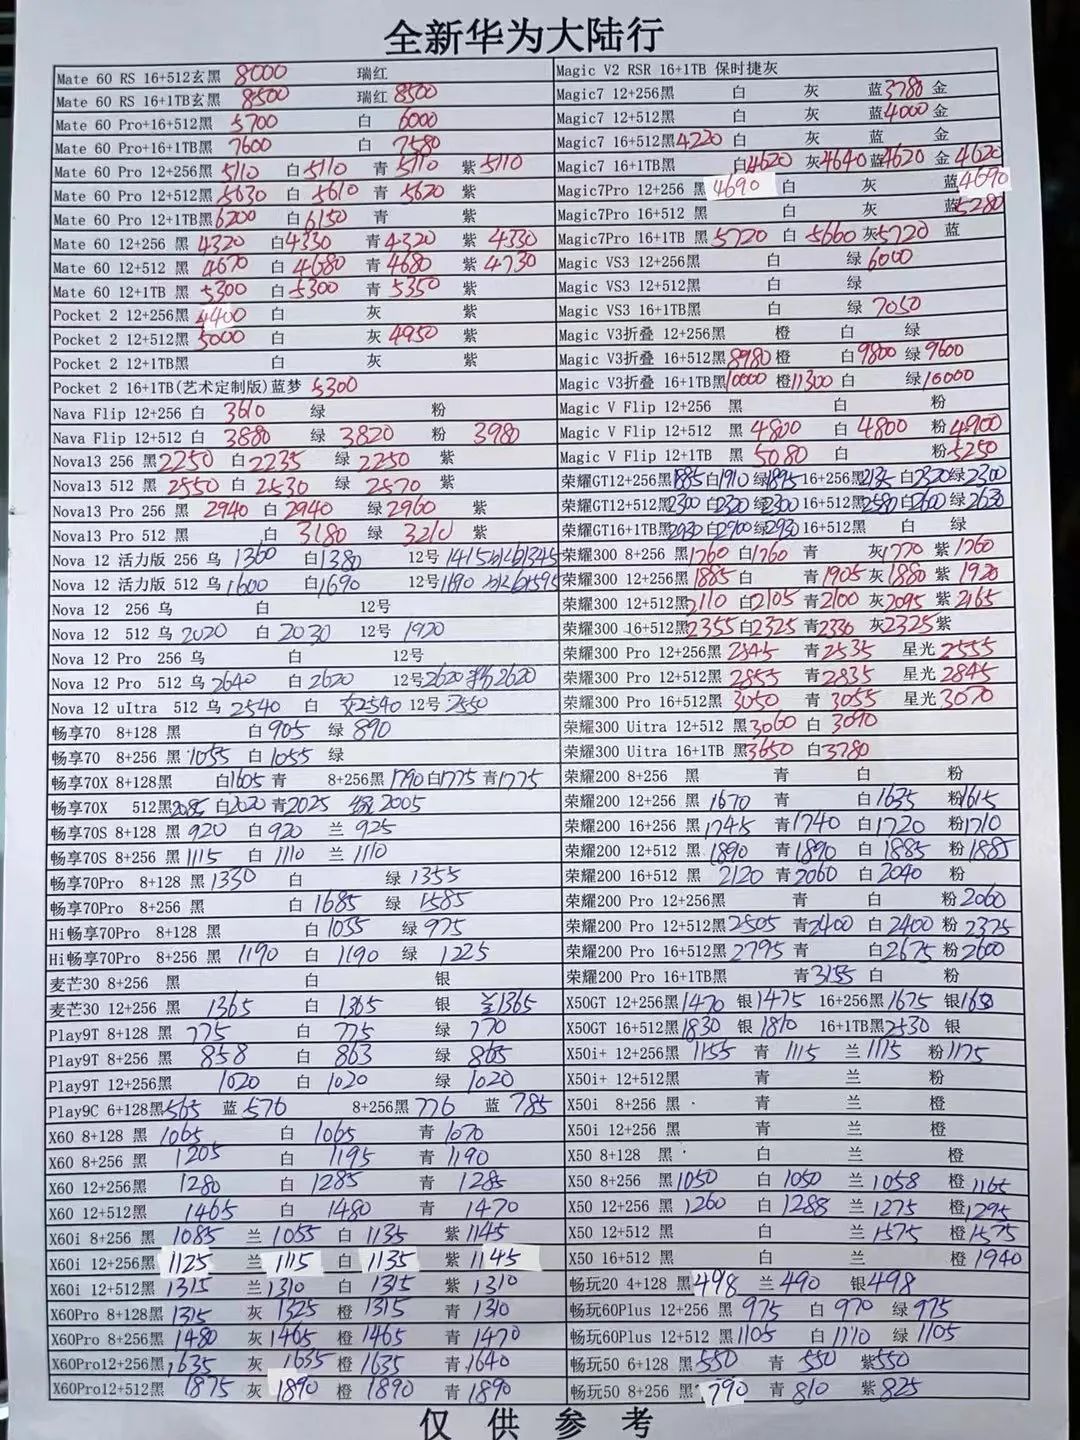 全新华为大陆行
Mate 60 RS 16+512玄黑 8000 瑞红
Mate 60 RS 16+1TB玄黑 8500 瑞红 8500
Mate 60 Pro+16+512黑 5700 白 6000
Mate 60 Pro+16+1TB黑 7600 白 7580
Mate 60 Pro 12+256黑 5110 白 5110 青 5110 紫 5110
Mate 60 Pro 12+512黑 5630 白 5610 青 5620 紫
Mate 60 Pro 12+1TB黑 6200 白 6150 青 紫
Mate 60 12+256 黑 4320 白 4330 青 4320 紫 4330
Mate 60 12+512 黑 4670 白 4680 青 4680 紫 4730
Mate 60 12+1TB 黑 5300 白 5300 青 5350 紫
Pocket 2 12+256黑 4400 白 灰 紫
Pocket 2 12+512黑 5000 白 灰 4950 紫
Pocket 2 12+1TB黑 白 灰 紫
Pocket 2 16+1TB(艺术定制版)蓝梦 5300
Nava Flip 12+256 白 3610 绿 粉
Nava Flip 12+512 白 3880 绿 3820 粉 3980
Nova13 256 黑 2250 白 2235 绿 2250 紫
Nova13 512 黑 2550 白 2530 绿 2570 紫
Nova13 Pro 256 黑 2940 白 2940 绿 2960 紫
Nova13 Pro 512 黑 白 3180 绿 3210 紫
Nova 12 活力版 256 乌 1360 白 1380 12号 1415 1345
Nova 12 活力版 512 乌 1600 白 1690 12号 1190 1595
Nova 12 256 乌 白 12号
Nova 12 512 乌 2020 白 2030 12号 1920
Nova 12 Pro 256 乌 白 12号
Nova 12 Pro 512 乌 2640 白 2620 12号 2620 2620
Nova 12 uItra 512 乌 2540 白 2540 12号 2550
畅享70 8+128 黑 白 905 绿 890
畅享70 8+256 黑 1055 白 1055 绿
畅享70X 8+128黑 白 1605 青 8+256黑 1790 白 1775 青 1775
畅享70X 512黑 2085 白 2020 青 2025 绿 2005
畅享70S 8+128 黑 920 白 920 兰 925
畅享70S 8+256 黑 1115 白 1110 兰 1110
畅享70Pro 8+128 黑 1330 白 绿 1355
畅享70Pro 8+256 黑 白 1685 绿 1585
Hi畅享70Pro 8+128 黑 白 1055 绿 975
Hi畅享70Pro 8+256 黑 1190 白 1190 绿 1225
麦芒30 8+256 黑 白 银
麦芒30 12+256 黑 1365 白 1365 银 兰1365
Play9T 8+128 黑 775 白 775 绿 770
Play9T 8+256 黑 858 白 863 绿 865
Play9T 12+256黑 1020 白 1020 绿 1020
Play9C 6+128黑 565 蓝 576 8+256黑 776 蓝 785
X60 8+128 黑 1065 白 1065 青 1070
X60 8+256 黑 1205 白 1195 青 1190
X60 12+256黑 1280 白 1285 青 1285
X60 12+512黑 1465 白 1480 青 1470
X60i 8+256 黑 1085 兰 1055 白 1135 紫 1145
X60i 12+256黑 1125 兰 1115 白 1135 紫 1145
X60i 12+512黑 1315 兰 1310 白 1315 紫 1310
X60Pro 8+128黑 1315 灰 1325 橙 1315 青 1310
X60Pro 8+256黑 1480 灰 1465 橙 1465 青 1470
X60Pro12+256黑 1635 灰 1635 橙 1635 青 1640
X60Pro12+512黑 1875 灰 1890 橙 1890 青 1890
Magic V2 RSR 16+1TB 保时捷灰
Magic7 12+256黑 白 灰 蓝 3780 金
Magic7 12+512黑 白 灰 蓝 4000 金
Magic7 16+512黑 4220 白 灰 蓝 金
Magic7 16+1TB黑 白 4620 灰 4640 蓝 4620 金 4620
Magic7Pro 12+256 黑 4690 白 灰 蓝 4690
Magic7Pro 16+512 黑 白 灰 蓝 5280
Magic7Pro 16+1TB 黑 5720 白 5660 灰 5720 蓝
Magic VS3 12+256黑 白 绿 6000
Magic VS3 12+512黑 白 绿
Magic VS3 16+1TB黑 白 绿 7050
Magic V3折叠 12+256黑 橙 白 绿
Magic V3折叠 16+512黑 8980 橙 白 9800 绿 9600
Magic V3折叠 16+1TB黑 10000 橙 11300 白 绿 10000
Magic V Flip 12+256 黑 白 粉
Magic V Flip 12+512 黑 4800 白 4800 粉 4900
Magic V Flip 12+1TB 黑 5080 白 粉 5250
荣耀GT12+256黑 1885 白 1910 绿 1895 16+256黑 2135 白 2320 绿 2300
荣耀GT12+512黑 2300 白 2320 绿 2300 16+512黑 2580 白 2600 绿 2630
荣耀GT16+1TB黑 2930 白 2900 绿 2930 16+512黑 白 绿
荣耀300 8+256 黑 1760 白 1760 青 灰 1770 紫 1760
荣耀300 12+256黑 1885 白 青 1905 灰 1880 紫 1920
荣耀300 12+512黑 2110 白 2105 青 2100 灰 2095 紫 2165
荣耀300 16+512黑 2355 白 2325 青 2330 灰 2325 紫
荣耀300 Pro 12+256黑 2545 青 2535 星光 2555
荣耀300 Pro 12+512黑 2855 青 2835 星光 2845
荣耀300 Pro 16+512黑 3050 青 3055 星光 3070
荣耀300 Uitra 12+512 黑 3060 白 3090
荣耀300 Uitra 16+1TB 黑 3650 白 3780
荣耀200 8+256 黑 青 白 粉
荣耀200 12+256 黑 1670 青 白 1635 粉 1615
荣耀200 16+256 黑 1745 青 1740 白 1720 粉 1710
荣耀200 12+512 黑 1890 青 1890 白 1885 粉 1885
荣耀200 16+512 黑 2120 青 2060 白 2040 粉
荣耀200 Pro 12+256黑 青 白 粉 2060
荣耀200 Pro 12+512黑 2505 青 2400 白 2400 粉 2375
荣耀200 Pro 16+512黑 2795 青 白 2675 粉 2600
荣耀200 Pro 16+1TB黑 青 3155 白 粉
X50GT 12+256黑 1470 银 1475 16+256黑 1675 银 1650
X50GT 16+512黑 1830 银 1810 16+1TB黑 2530 银
X50i+ 12+256黑 1155 青 1115 兰 1175 粉 1175
X50i+ 12+512黑 青 兰 粉
X50i 8+256黑 青 兰 橙
X50i 12+256黑 青 兰 橙
X50 8+128 黑 白 兰 橙
X50 8+256 黑 1050 白 1050 兰 1058 橙 1165
X50 12+256 黑 1260 白 1288 兰 1275 橙 1295
X50 12+512 黑 白 兰 1575 橙 1575
X50 16+512 黑 白 兰 橙 1940
畅玩20 4+128 黑 498 兰 490 银 498
畅玩60Plus 12+256 黑 975 白 970 绿 975
畅玩60Plus 12+512 黑 1105 白 1110 绿 1105
畅玩50 6+128 黑 550 青 550 紫 550
畅玩50 8+256 黑 790 青 810 紫 825
仅供参考